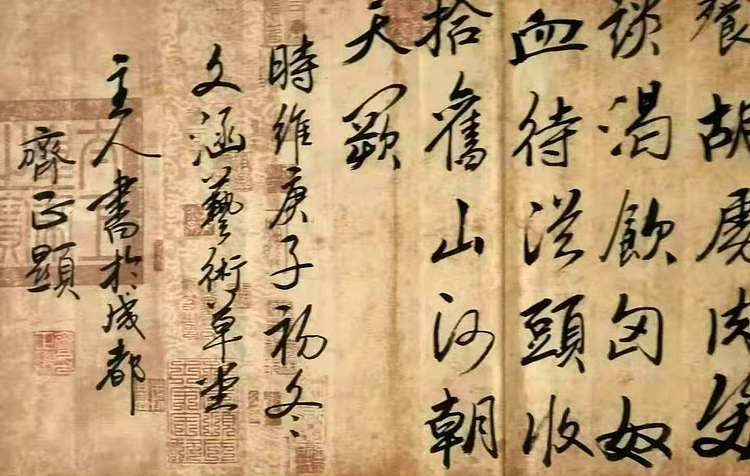 胡虜肉笑
談渴飲匈奴
血待從頭收
拾舊山河朝
天闕
時維庚子初冬
文涵藝術草堂
主人書於成都
齊正題